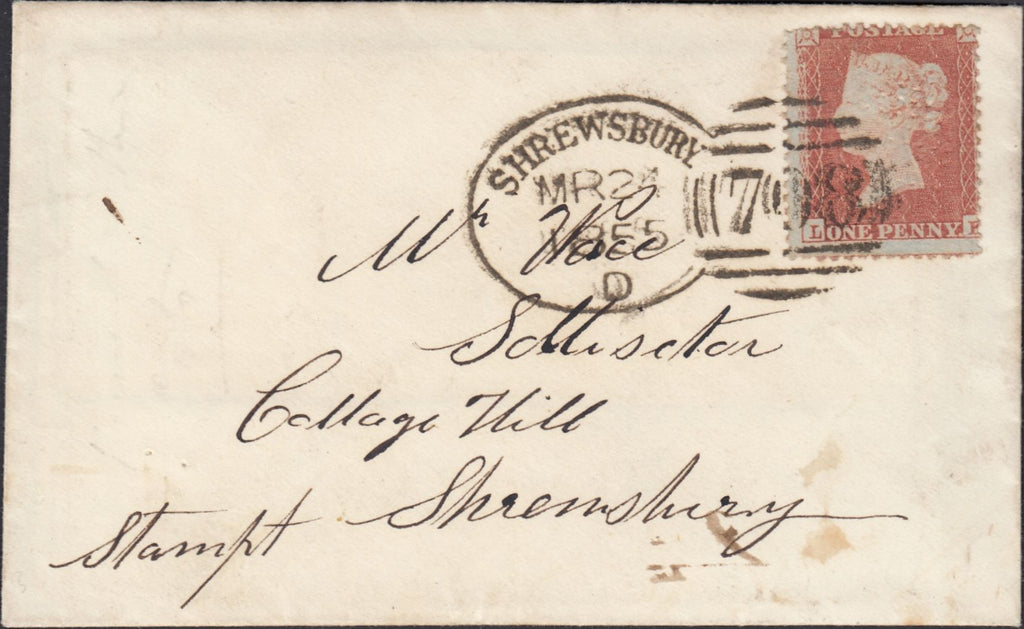 POSTAGE
SHREWSBURY
MR 24
1855
D
708
L ONE PENNY
Mr Wace
Sollisctor
Collage Hill
Shrewsbury
Stampt